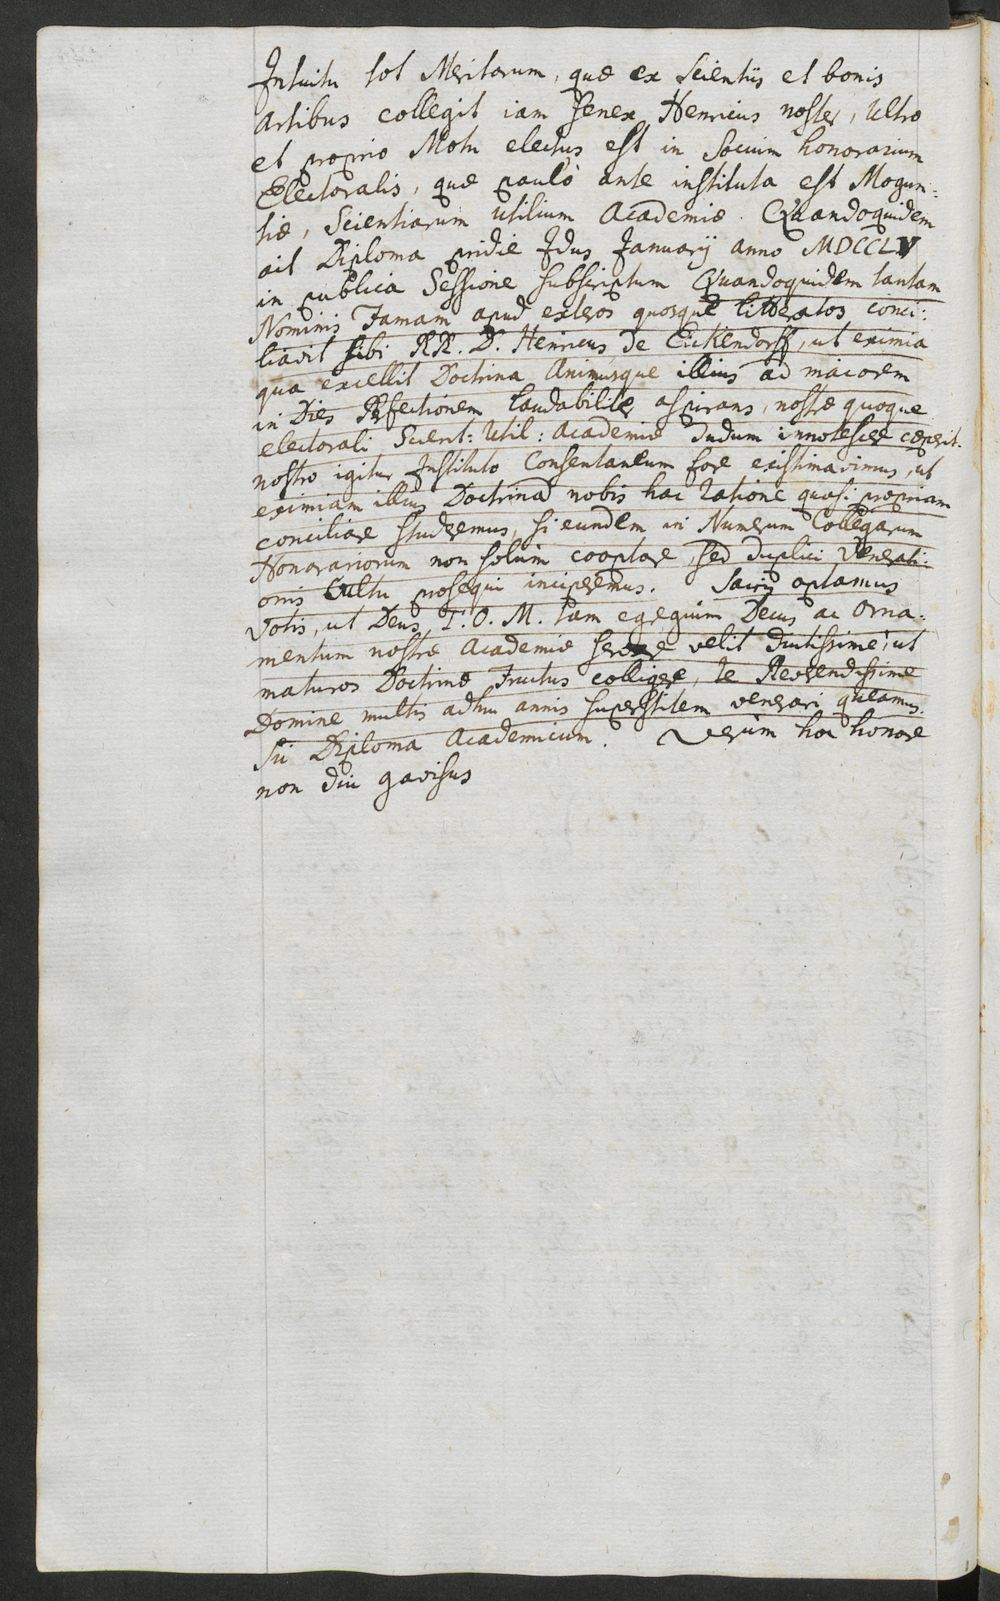 Intuitu tot Meritorum, quæ ex Scientiis et bonis
Artibus collegit iam Senex Henricus noster, Ultro
et proprio Motu electus est in Socium honorarium
Electoralis, quæ paulò ante instituta est Mogun-
tiæ, Scientiarum Utilium Academiæ. Quandoquidem
ait Diploma pridie Idus Januarij anno MDCCLV
in publica Sessione subscriptum Quandoquidem tantam
Nominis Famam apud exteros quosque litteratos conci:
liavit sibi RR. D. Henricus de Eickendorff, ut eximia
qua excellit Doctrina Animusque illius ad maiorem
in Dies Perfectionem laudabiliter aspirans, nostræ quoque
electorali Scient: Util: Academiæ dudum innotescere cæperit.
nostro igitur Instituto Consentaneum fore existimavimus, ut
eximiam illius Doctrinam nobis hac Ratione quasi propriam
conciliare studeremus, si eundem in Numerum Collegarum
Honorariorum non solum cooptare, sed duplici Venerati:
onis Cultu prosequi inciperemus. Sacris optamus
Votis, ut Deus T. O. M. tam egregium Decus ac Orna:
mentum nostræ Academiæ servare velit diutissimè, ut
maturos Doctrinæ Fructus colligere, te Reverendissime
Domine multis adhuc annis superstitem venerari queamus.
Sic Diploma Academicum. Verùm hoc honore
non diu gavisus